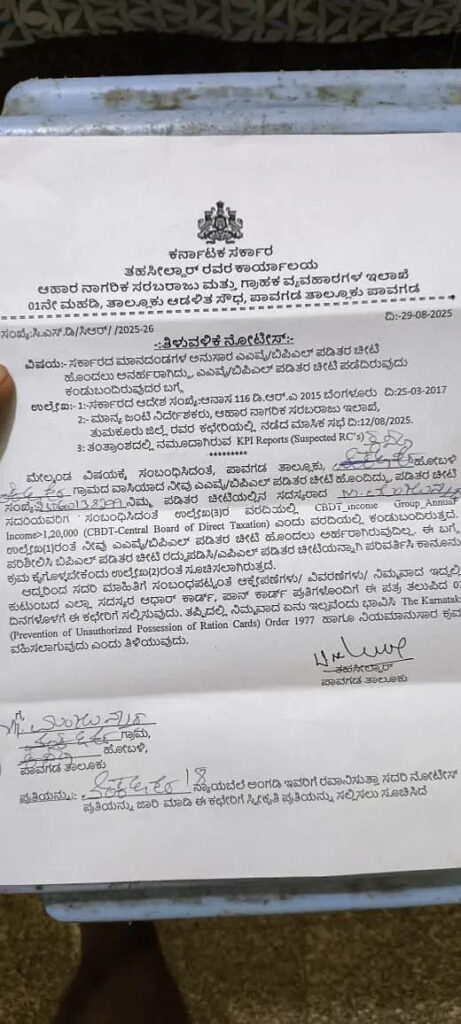 ಕರ್ನಾಟಕ ಸರ್ಕಾರ
ತಹಸೀಲ್ದಾರ್ ರವರ ಕಾರ್ಯಾಲಯ
ಆಹಾರ ನಾಗರಿಕ ಸರಬರಾಜು ಮತ್ತು ಗ್ರಾಹಕ ವ್ಯವಹಾರಗಳ ಇಲಾಖೆ
01ನೇ ಮಹಡಿ, ತಾಲ್ಲೂಕು ಆಡಳಿತ ಸೌಧ, ಪಾವಗಡ ತಾಲ್ಲೂಕು ಪಾವಗಡ
ಸಂಖ್ಯೆ:ಸಿ.ಎಸ್.ಡಿ/ಸಿಆರ್/ /2025-26 ದಿ:-29-08-2025
-:ತಿಳುವಳಿಕೆ ನೋಟೀಸ್:-
ವಿಷಯ:- ಸರ್ಕಾರದ ಮಾನದಂಡಗಳ ಅನುಸಾರ ಎಎವೈ/ಬಿಪಿಎಲ್ ಪಡಿತರ ಚೀಟಿ
ಹೊಂದಲು ಅನರ್ಹರಾಗಿದ್ದು, ಎಎವೈ/ಬಿಪಿಎಲ್ ಪಡಿತರ ಚೀಟಿ ಪಡೆದಿರುವುದು
ಕಂಡುಬಂದಿರುವದರ ಬಗ್ಗೆ
ಉಲ್ಲೇಖ: 1:-ಸರ್ಕಾರದ ಆದೇಶ ಸಂಖ್ಯೆ:ಆನಾಸ 116 ಡಿ.ಆರ್.ಎ 2015 ಬೆಂಗಳೂರು ದಿ:25-03-2017
2:- ಮಾನ್ಯ ಜಂಟಿ ನಿರ್ದೇಶಕರು, ಆಹಾರ ನಾಗರಿಕ ಸರಬರಾಜು ಇಲಾಖೆ,
ತುಮಕೂರು ಜಿಲ್ಲೆ ರವರ ಕಛೇರಿಯಲ್ಲಿ ನಡೆದ ಮಾಸಿಕ ಸಭೆ ದಿ:12/08/2025.
3: ತಂತ್ರಾಂಶದಲ್ಲಿ ನಮೂದಾಗಿರುವ KPI Reports (Suspected RC's)
*********
ಮೇಲ್ಕಂಡ ವಿಷಯಕ್ಕೆ ಸಂಬಂಧಿಸಿದಂತೆ, ಪಾವಗಡ ತಾಲ್ಲೂಕು, ಹೋಬಳಿ
ಗ್ರಾಮದ ವಾಸಿಯಾದ ನೀವು ಎಎವೈ/ಬಿಪಿಎಲ್ ಪಡಿತರ ಚೀಟಿ ಹೊಂದಿದ್ದು, ಪಡಿತರ ಚೀಟಿ
ಸಂಖ್ಯೆ ನಿಮ್ಮ ಪಡಿತರ ಚೀಟಿಯಲ್ಲಿನ ಸದಸ್ಯರಾದ
ಸದರಿಯವರಿಗೆ ಸಂಬಂಧಿಸಿದಂತೆ ಉಲ್ಲೇಖ(3)ರ ವರದಿಯಲ್ಲಿ CBDT_income Group_Annual
Income>1,20,000 (CBDT-Central Board of Direct Taxation) ಎಂದು ವರದಿಯಲ್ಲಿ ಕಂಡುಬಂದಿರುತ್ತದೆ.
ಉಲ್ಲೇಖ(1)ರಂತೆ ನೀವು ಎಎವೈ/ಬಿಪಿಎಲ್ ಪಡಿತರ ಚೀಟಿ ಹೊಂದಲು ಅರ್ಹರಾಗಿರುವುದಿಲ್ಲ. ಈ ಬಗ್ಗೆ
ಪರಿಶೀಲಿಸಿ ಬಿಪಿಎಲ್ ಪಡಿತರ ಚೀಟಿ ರದ್ದುಪಡಿಸಿ/ಎಪಿಎಲ್ ಪಡಿತರ ಚೀಟಿಯನ್ನಾಗಿ ಪರಿವರ್ತಿಸಿ ಕಾನೂನು
ಕ್ರಮ ಕೈಗೊಳ್ಳಬೇಕೆಂದು ಉಲ್ಲೇಖ(2)ರಂತೆ ಸೂಚಿಸಲಾಗಿರುತ್ತದೆ.
ಆದ್ದರಿಂದ ಸದರಿ ಮಾಹಿತಿಗೆ ಸಂಬಂಧಪಟ್ಟಂತೆ ಆಕ್ಷೇಪಣೆಗಳು/ ವಿವರಣೆಗಳು/ ನಿಮ್ಮವಾದ ಇದ್ದಲ್ಲಿ
ಕುಟುಂಬದ ಎಲ್ಲಾ ಸದಸ್ಯರ ಆಧಾರ್ ಕಾರ್ಡ್, ಪಾನ್ ಕಾರ್ಡ್ ಪ್ರತಿಗಳೊಂದಿಗೆ ಈ ಪತ್ರ ತಲುಪಿದ
ದಿನಗಳೊಳಗೆ ಈ ಕಛೇರಿಗೆ ಸಲ್ಲಿಸುವುದು. ತಪ್ಪಿದಲ್ಲಿ ನಿಮ್ಮವಾದ ಏನು ಇಲ್ಲವೆಂದು ಭಾವಿಸಿ The
(Prevention of Unauthorized Possession of Ration Cards) Order 1977 ಹಾಗೂ ನಿಯಮಾನುಸಾರ ಕ್ರಮ
ವಹಿಸಲಾಗುವುದು ಎಂದು ತಿಳಿಯುವುದು.
ತಹಸೀಲ್ದಾರ್
ಪಾವಗಡ ತಾಲೂಕು
ಗೆ,
ಗ್ರಾಮ,
ಹೋಬಳಿ,
ಪಾವಗಡ ತಾಲೂಕು
ಪ್ರತಿಯನ್ನು:- 18 ನ್ಯಾಯಬೆಲೆ ಅಂಗಡಿ ಇವರಿಗೆ ರವಾನಿಸುತ್ತಾ ಸದರಿ ನೋಟೀಸ್
ಪ್ರತಿಯನ್ನು ಜಾರಿ ಮಾಡಿ ಈ ಕಛೇರಿಗೆ ಸ್ವೀಕೃತಿ ಪ್ರತಿಯನ್ನು ಸಲ್ಲಿಸಲು ಸೂಚಿಸಿದೆ